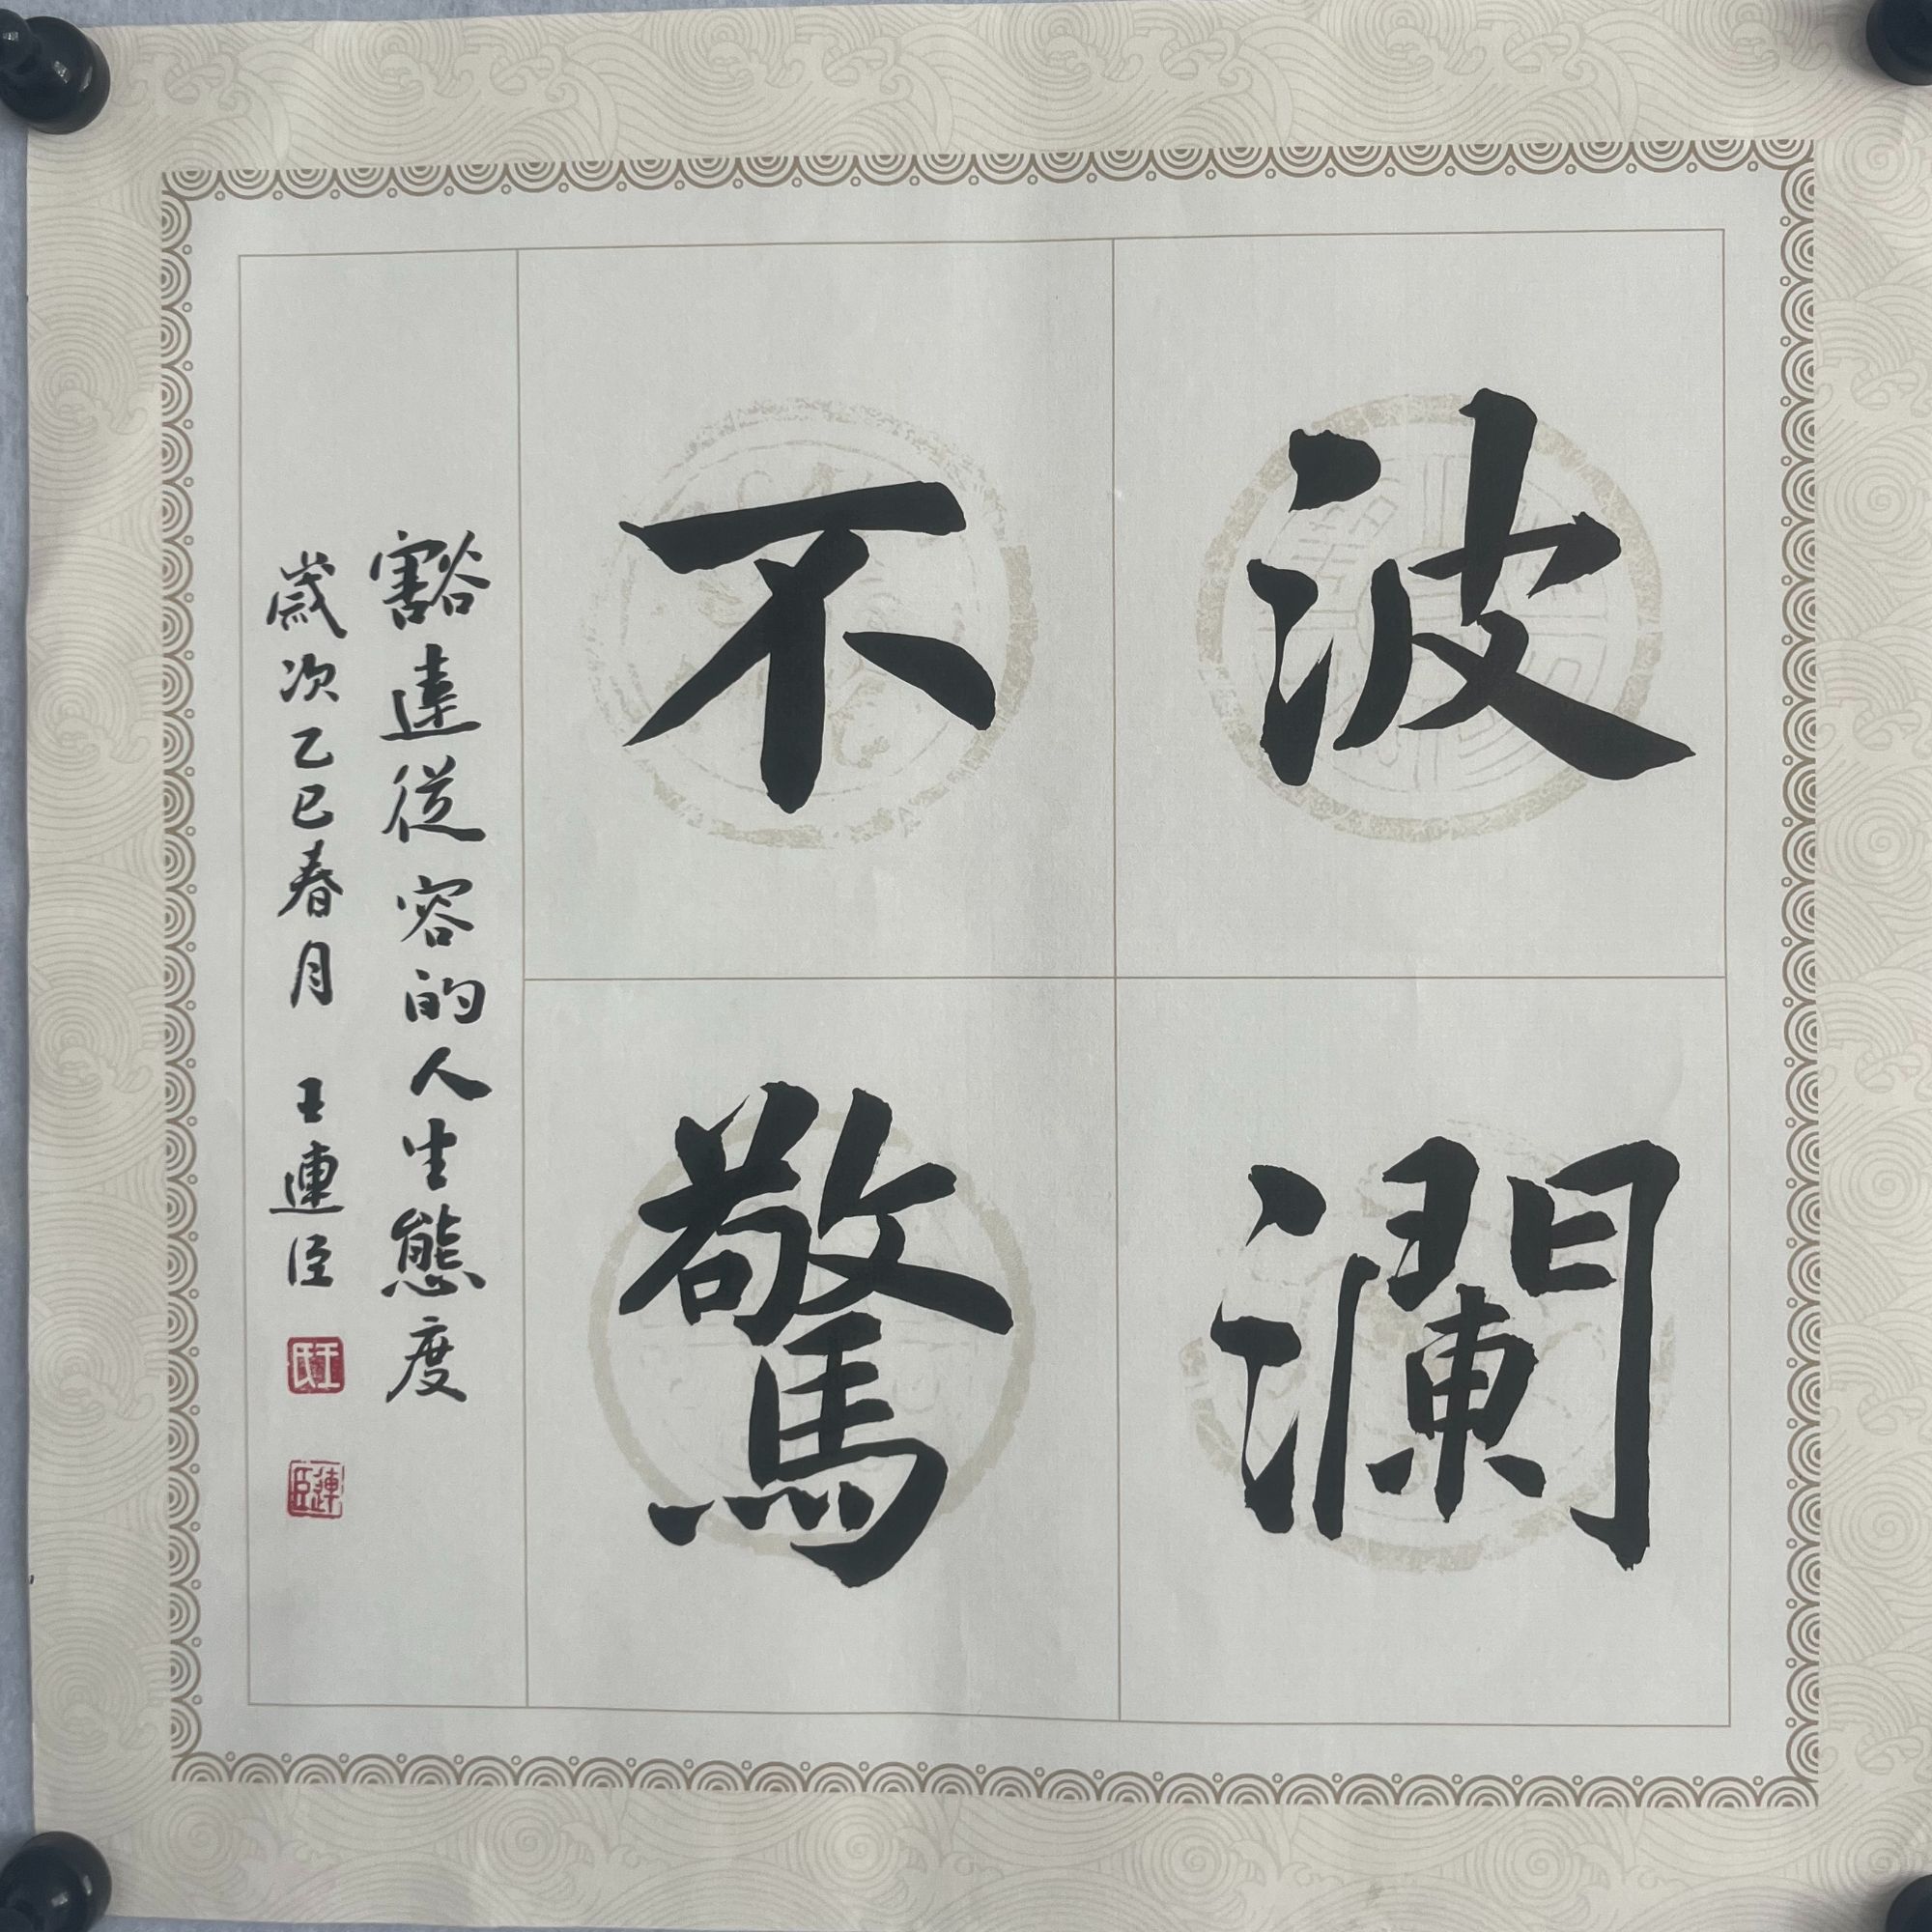 波瀾
不驚
豁達從容的人生態度
歲次乙巳春月 王連臣
王氏
連臣